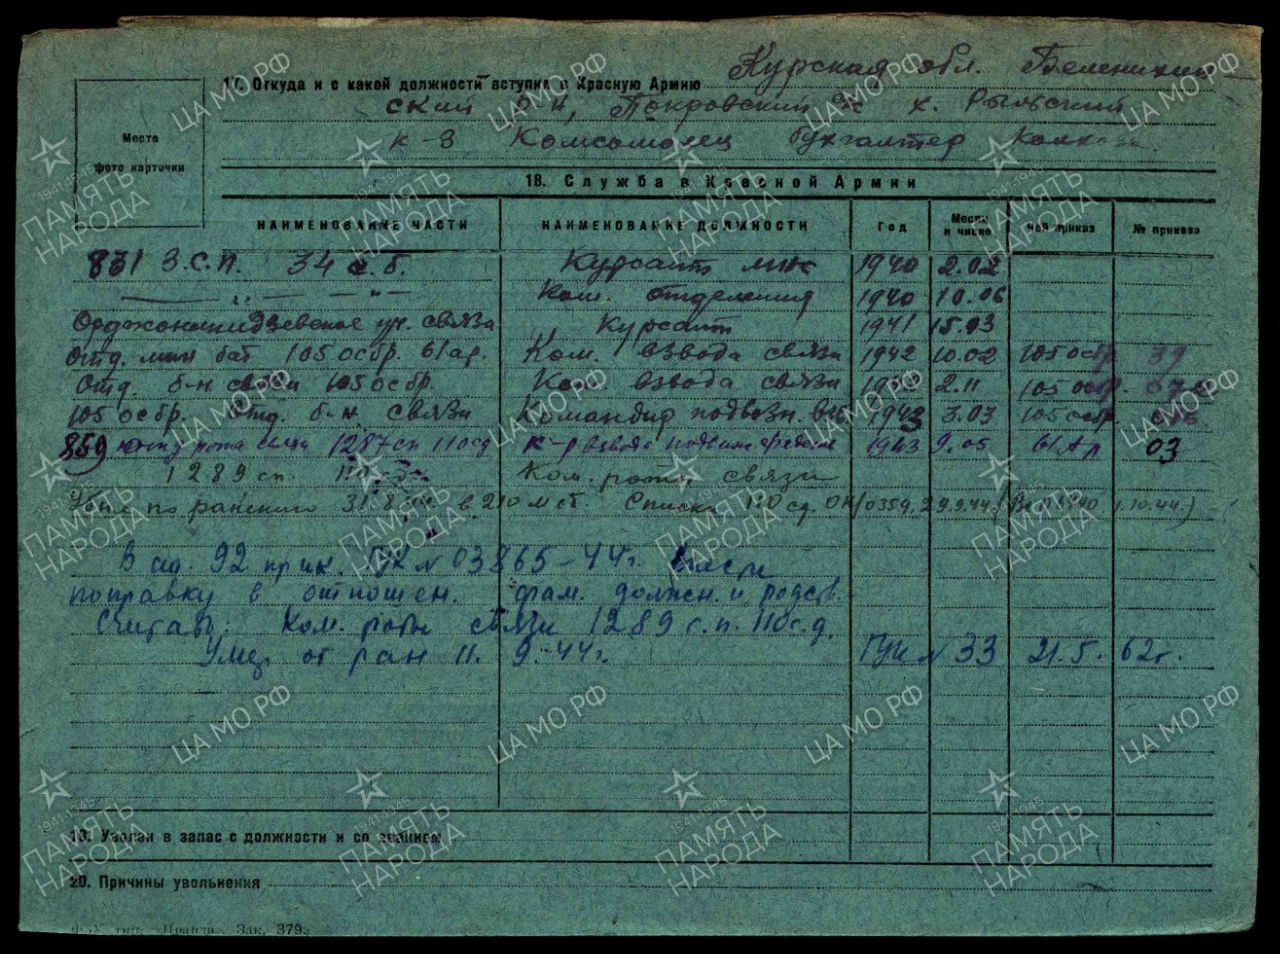 17. Откуда и с какой должности вступил в Красную Армию Курская обл. Беленихин
ский р-н, Покровский с/с х. Рыльский
к-з Комсомолец бухгалтер колхоза
Место
фото карточки
18. Служба в Красной Армии
НАИМЕНОВАНИЕ ЧАСТИ НАИМЕНОВАНИЕ ДОЛЖНОСТИ Год Месяц и число Чей приказ № приказа
831 З.С.П. 34 с.б. Курсант 1940 2.02
— " — — " — Ком. отделения 1940 10.06
Орджоникидзевское уч. связи Курсант 1941 15.03
Отд. мин бат 105 осбр. 61 ар. Ком. взвода связи 1942 10.02 105 осбр. 39
Отд. б-н связи 105 осбр. Ком взвода связи 2.11 105 осбр.
105 осбр. Отд. б-н связи Командир 1943 3.03 105 осбр.
859 рота связи 1287 сп 110 сд к-р взвода 1943 9.05 61 Ар 03
1289 сп. Ком. роты связи
по ранению в 210 мсб. Списки 110 сд. 0359, 29.9.44. 1.10.44.)
В ад. 92 прик. ГУК № 03865-44г. внести
поправку в отношен. фам. должн. и родств.
Считать: Ком. роты связи 1289 с.п. 110 с.д.
Умер от ран 11. 9. 44г. ГУК № 33 21. 5. 62г.
19. Уволен в запас с должности и со званием
20. Причины увольнения
тип. „Правда“. Зак. 379.
ЦА МО РФ
1941-1945
ПАМЯТЬ
НАРОДА